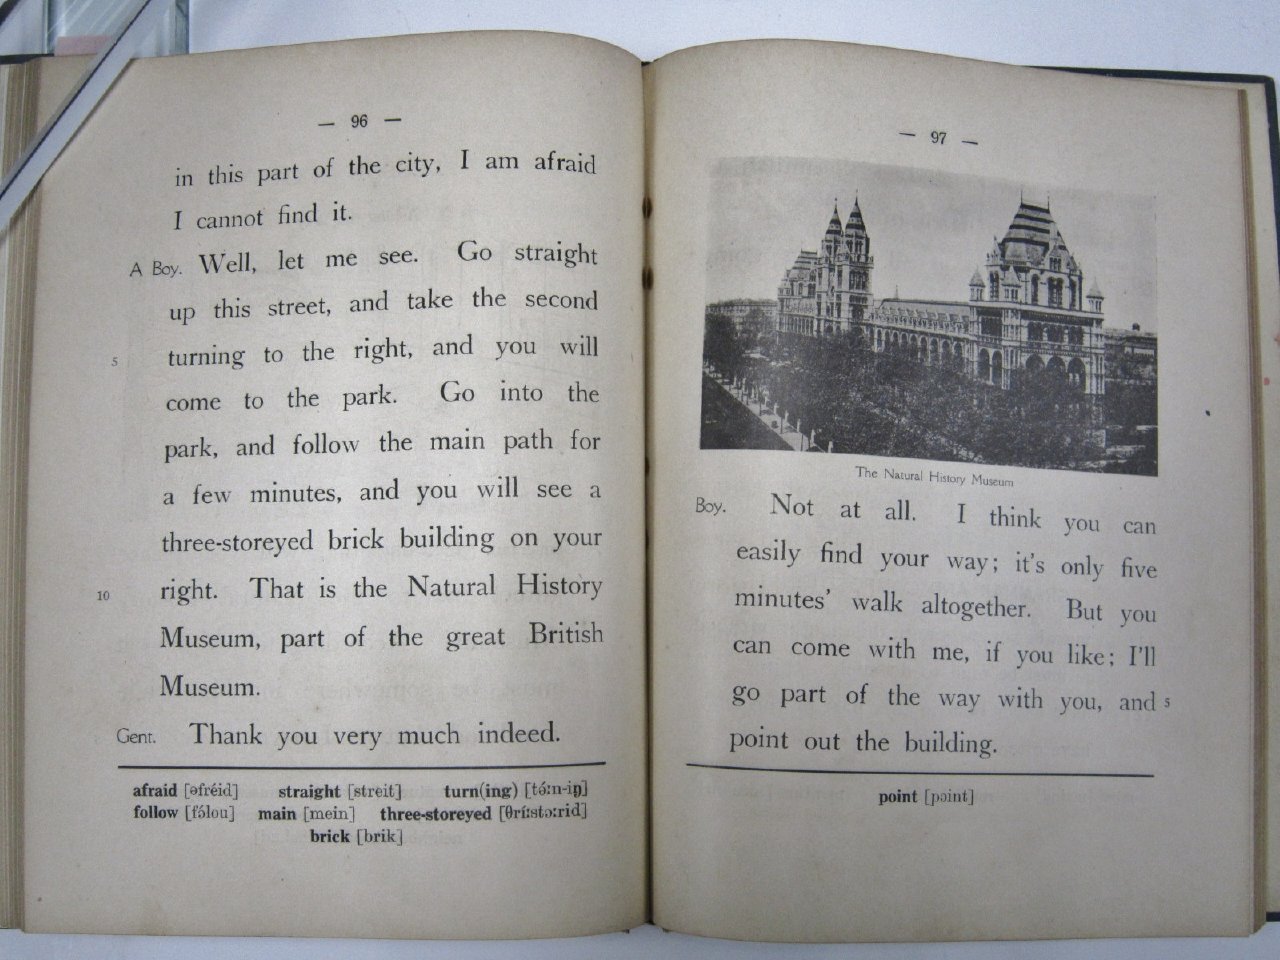 — 96 —
in this part of the city, I am afraid
I cannot find it.
A Boy. Well, let me see. Go straight
up this street, and take the second
5 turning to the right, and you will
come to the park. Go into the
park, and follow the main path for
a few minutes, and you will see a
three-storeyed brick building on your
10 right. That is the Natural History
Museum, part of the great British
Museum.
Gent. Thank you very much indeed.
afraid [əfréid] straight [streit] turn(ing) [tə́ːn-iŋ]
follow [fɔ́lou] main [mein] three-storeyed [θríːstɔːrid]
brick [brik]
— 97 —
The Natural History Museum
Boy. Not at all. I think you can
easily find your way; it's only five
minutes' walk altogether. But you
can come with me, if you like; I'll
go part of the way with you, and 5
point out the building.
point [pɔint]